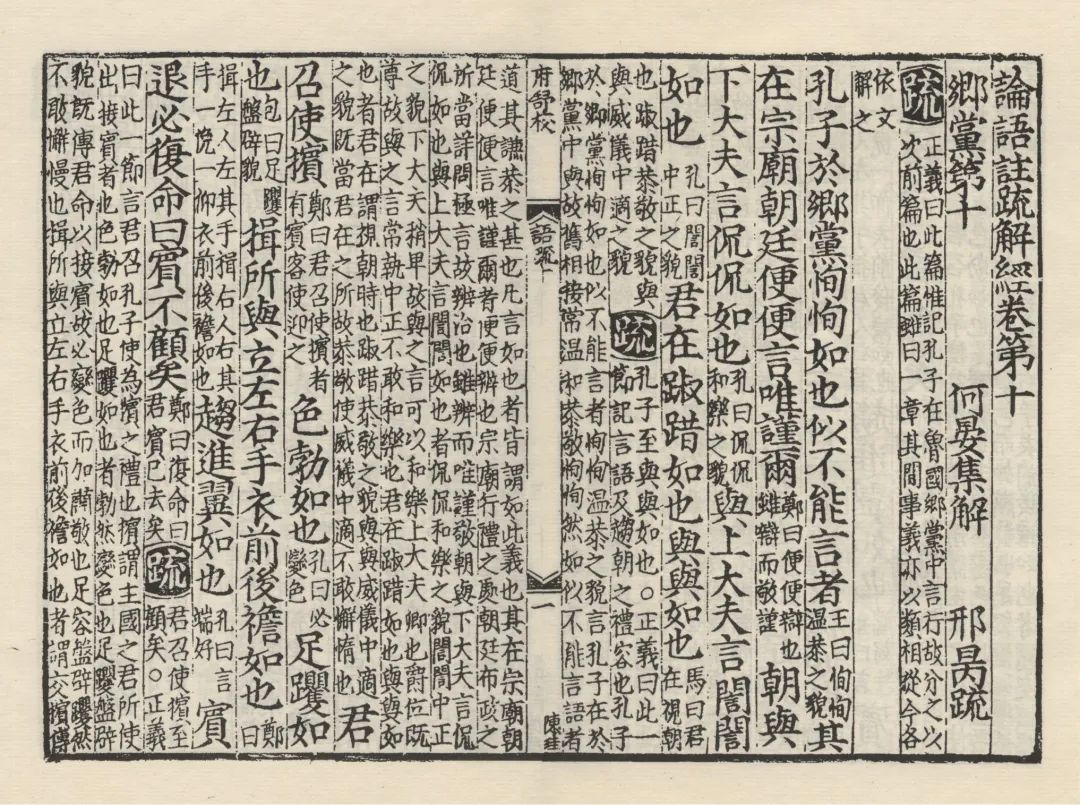 論語註疏解經卷第十
鄉黨第十　何晏集解　邢昺疏
疏 正義曰此篇惟記孔子在魯國鄉黨中言行故分之以
次前篇也此篇雖曰一章其間事義亦以類相從今各
依文
解之
孔子於鄉黨恂恂如也似不能言者 王曰恂恂溫恭之貌 其
在宗廟朝廷便便言唯謹爾 鄭曰便便辯也雖辯而敬謹 朝與
下大夫言侃侃如也 孔曰侃侃和樂之貌 與上大夫言誾誾
如也 孔曰誾誾中正之貌 君在踧踖如也與與如也 馬曰君在視朝
也踧踖恭敬之貌與與威儀中適之貌 疏 孔子至與與如也○正義曰此一節記言語及趨朝之禮容也孔子
於鄉黨恂恂如也似不能言者恂恂溫恭之貌言孔子在於
鄉黨中與故舊相接常溫和恭敬恂恂然如似不能言語者
府舒校　語疏十　一　陳珪
道其謙恭之甚也凡言如也者皆謂如此義也其在宗廟朝
廷便便言唯謹爾者便便辨也宗廟行禮之處朝廷布政之
所當詳問極言故辨治也雖辨而唯謹敬朝與下大夫言侃
侃如也與上大夫言誾誾如也者侃侃和樂之貌誾誾中正
之貌下大夫稍卑故與之言可以和樂上大夫卿也爵位既
尊故與之言常執中正不敢和樂也君在踧踖如也與與如
也者君在謂視朝時也踧踖恭敬之貌與與威儀中適
之貌既當君在之所故恭敬使威儀中適不敢懈惰也 君
召使擯 鄭曰君召使擯者有賓客使迎之 色勃如也 孔曰必變色 足躩如
也 包曰足躩盤辟貌 揖所與立左右手衣前後襜如也 鄭曰
揖左人左其手揖右人右其手一俛一仰衣前後襜如也 趨進翼如也 孔曰言端好 賓
退必復命曰賓不顧矣 鄭曰復命曰君賓已去矣 疏 君召使擯至顧矣○正義
曰此一節言君召孔子使為擯之禮也擯謂主國之君所使
出接賓者也色勃如也足躩如也者勃然變色也足躩盤辟
貌既傳君命以接賓故必變色而加肅敬也足容盤辟躩然
不敢懈慢也揖所與立左右手衣前後襜如也者謂交擯傳